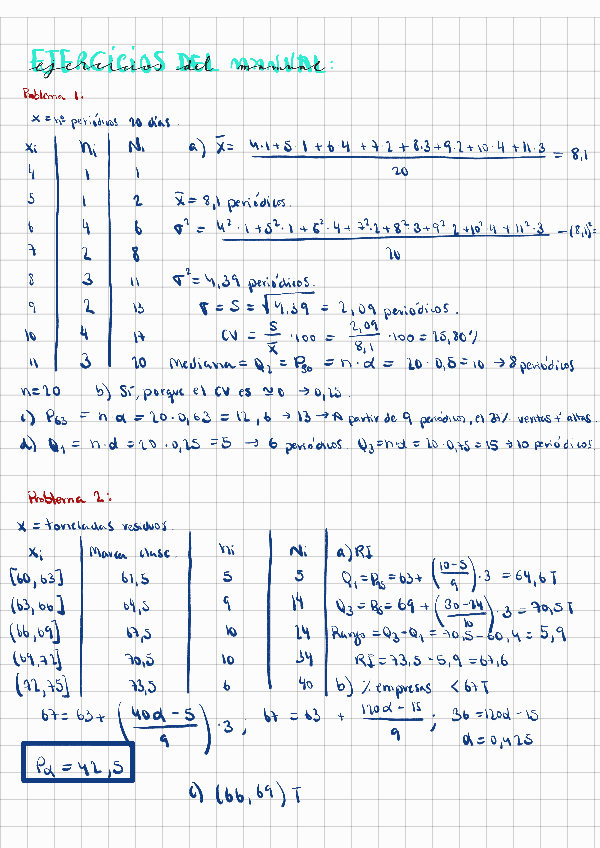 EJERCICIOS DEL MANUAL:
ejercicios del manual
Problema 1.
x = nº periódicos 20 días.
xi | ni | Ni
4 | 1 | 1
5 | 1 | 2
6 | 4 | 6
7 | 2 | 8
8 | 3 | 11
9 | 2 | 13
10 | 4 | 17
11 | 3 | 20
n=20
a) x̄ = (4·1+5·1+6·4+7·2+8·3+9·2+10·4+11·3)/20 = 8,1
x̄ = 8,1 periódicos.
σ² = (4²·1+5²·1+6²·4+7²·2+8²·3+9²·2+10²·4+11²·3)/20 - (8,1)²=
σ² = 4,39 periódicos.
σ = S = √4,39 = 2,09 periódicos.
CV = S/x̄ ·100 = 2,09/8,1 ·100 = 25,80%
Mediana = Q₂ = P₅₀ = n·α = 20·0,5=10 → 8 periódicos
b) Sí, porque el CV es ≃0 → 0,25.
c) P₆₃ = n α = 20·0,63 = 12,6 → 13 → A partir de 9 periódicos, el 37% ventas + altas.
d) Q₁ = n·α = 20·0,25 = 5 → 6 periódicos. Q₃=n·α = 20·0,75=15→10 periódicos.
Problema 2:
x = toneladas residuos.
xi | Marca clase | ni | Ni
[60, 63] | 61,5 | 5 | 5
(63, 66] | 64,5 | 9 | 14
(66, 69] | 67,5 | 10 | 24
(69, 72] | 70,5 | 10 | 34
(72, 75] | 73,5 | 6 | 40
a) RI
Q₁ = P₂₅ = 63+ ((10-5)/9)·3 = 64,6 T
Q₃ = = 69 + ((30-24)/10)·3 = 70,5 T
Rango = Q₃-Q₁ = 70,5 - 60,4 = 5,9
RI = 73,5 - 5,9 = 67,6
b) % empresas < 67 T
67 = 63+ ((40α - 5)/9)·3 ; 67 = 63 + (120α - 15)/9 ; 36 = 120α - 15
α = 0,425
Pα = 42,5
c) (66, 69) T